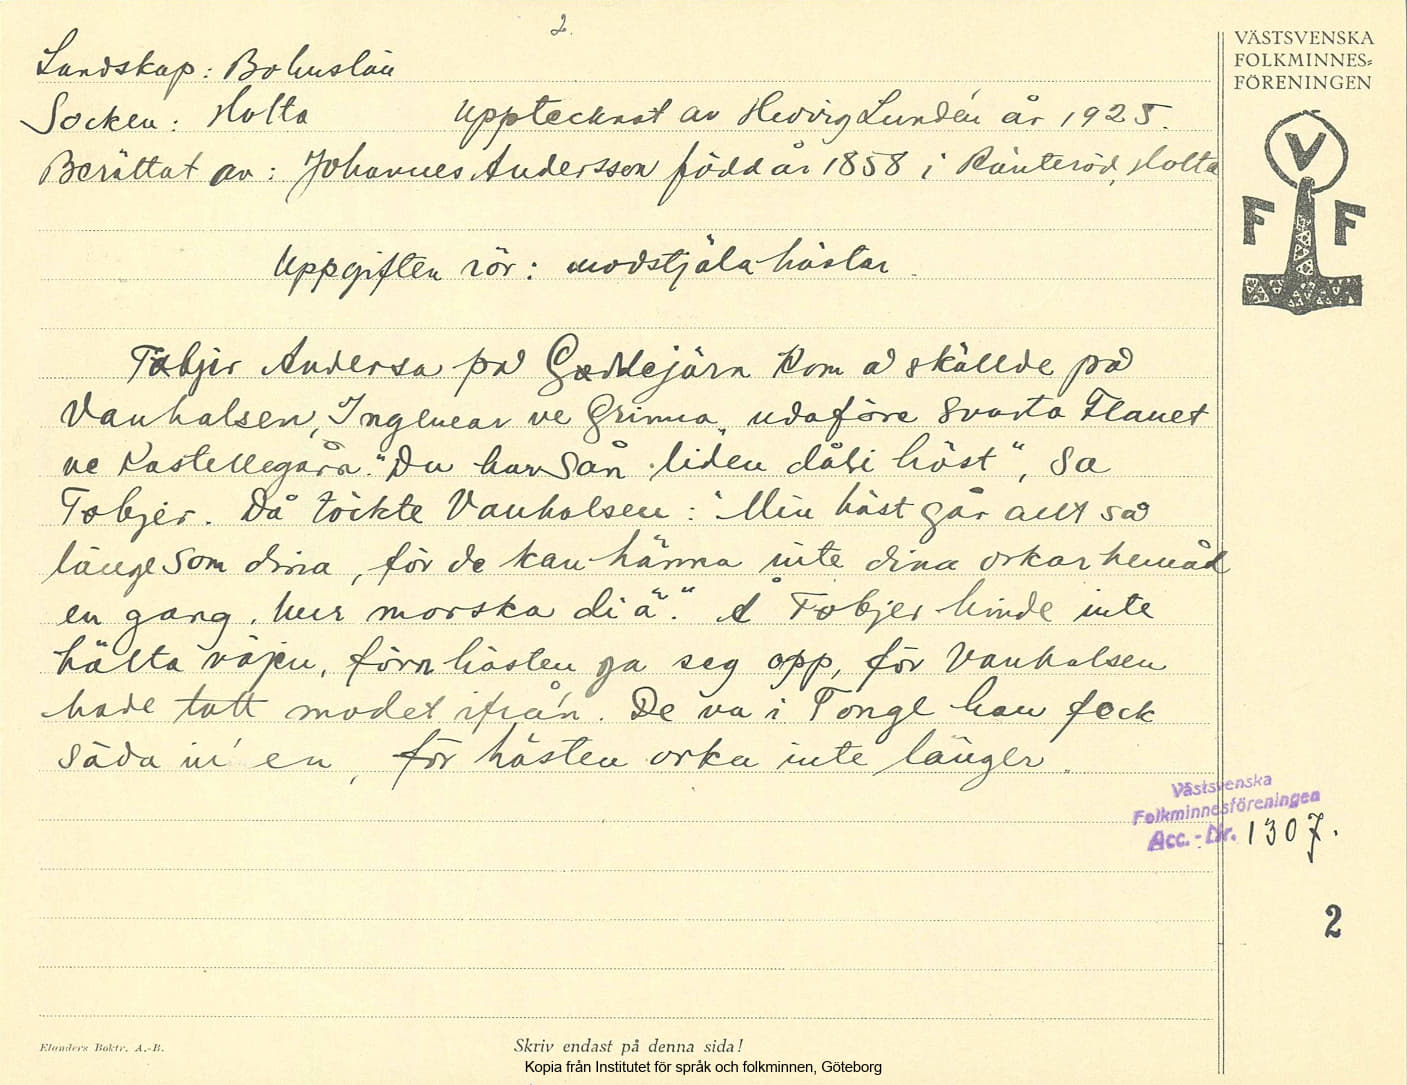 2.
VÄSTSVENSKA
FOLKMINNES-
FÖRENINGEN
V
F F
Landskap: Bohuslän
Socken: Holta Upptecknat av Hedvig Lundén år 1925.
Berättat av: Johannes Andersson född år 1858 i Ränteröd, Holta
Uppgiften rör: modstjäla hästar.
Tobjer Andersa på Gaddejärn kom å skällde på
Vanhalsen, "Ingenear ve Grinna" udaföre Svarta Flauet
ve Kastellegåra. "Du har sån liden dåli häst", sa
Tobjer. Då töckte Vanhalsen: "Min häst går allt så
länge som dina, för de kan hänna inte dina orkar hemåd
en gang, hur morska di ä". Å Tobjer hinde inte
hälta väjen, förn hästen ga seg opp, för Vanhalsen
hade tatt modet ifrå'n. De va i Tonge han feck
säda in' en, för hästen orka inte länger.
Västsvenska
Folkminnesföreningen
Acc.-Nr. 1307.
2
Elanders Boktr. A.-B.
Skriv endast på denna sida!
Kopia från Institutet för språk och folkminnen, Göteborg